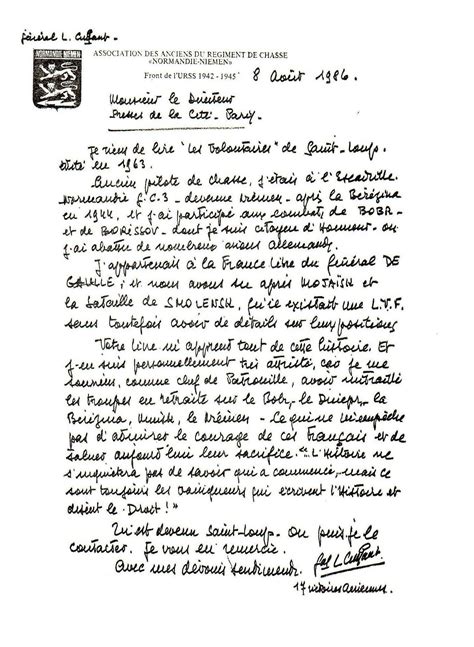 Général L. Cuffaut -
ASSOCIATION DES ANCIENS DU REGIMENT DE CHASSE
«NORMANDIE-NIEMEN»
Front de l'URSS 1942 - 1945
8 Août 1986.
NORMANDIE-NIEMEN
Monsieur le Directeur
Presses de la Cité - Paris -
Je viens de lire "Les Volontaires" de Saint-Loup.
édité en 1963.
Ancien pilote de chasse, j'étais à l'Escadrille
Normandie G.C.3 - devenue Niémen - après la Bérézina
en 1944, et j'ai participé aux combats de BOBR -
et de BORISSOV - dont je suis citoyen d'Honneur - où
j'ai abattu de nombreux avions allemands.
J'appartenais à la France Libre du général DE
GAULLE ; et nous avons su après MOJAÏSK et
la bataille de SMOLENSK, qu'il existait une L.V.F.
sans toutefois avoir de détails sur leurs positions
Votre livre m'apprend tout de cette histoire. Et
j'en suis personnellement très attristé, car je me
souviens, comme chef de Patrouille, avoir mitraillé
les troupes en retraite sur le Bobr, le Dniepr, la
Bérézina, Minsk, le Niémen - Ce qui ne m'empêche
pas d'admirer le courage de ces Français et de
saluer aujourd'hui leur sacrifice. "L'Histoire ne
s'inquiétera pas de savoir qui a commencé, mais ce
sont toujours les vainqueurs qui écrivent l'Histoire et
disent le Droit !"
Qu'est devenu Saint-Loup - Où puis-je le
contacter. Je vous en remercie.
Avec mes dévoués sentiments. Gal L. Cuffaut
17 victoires aériennes.